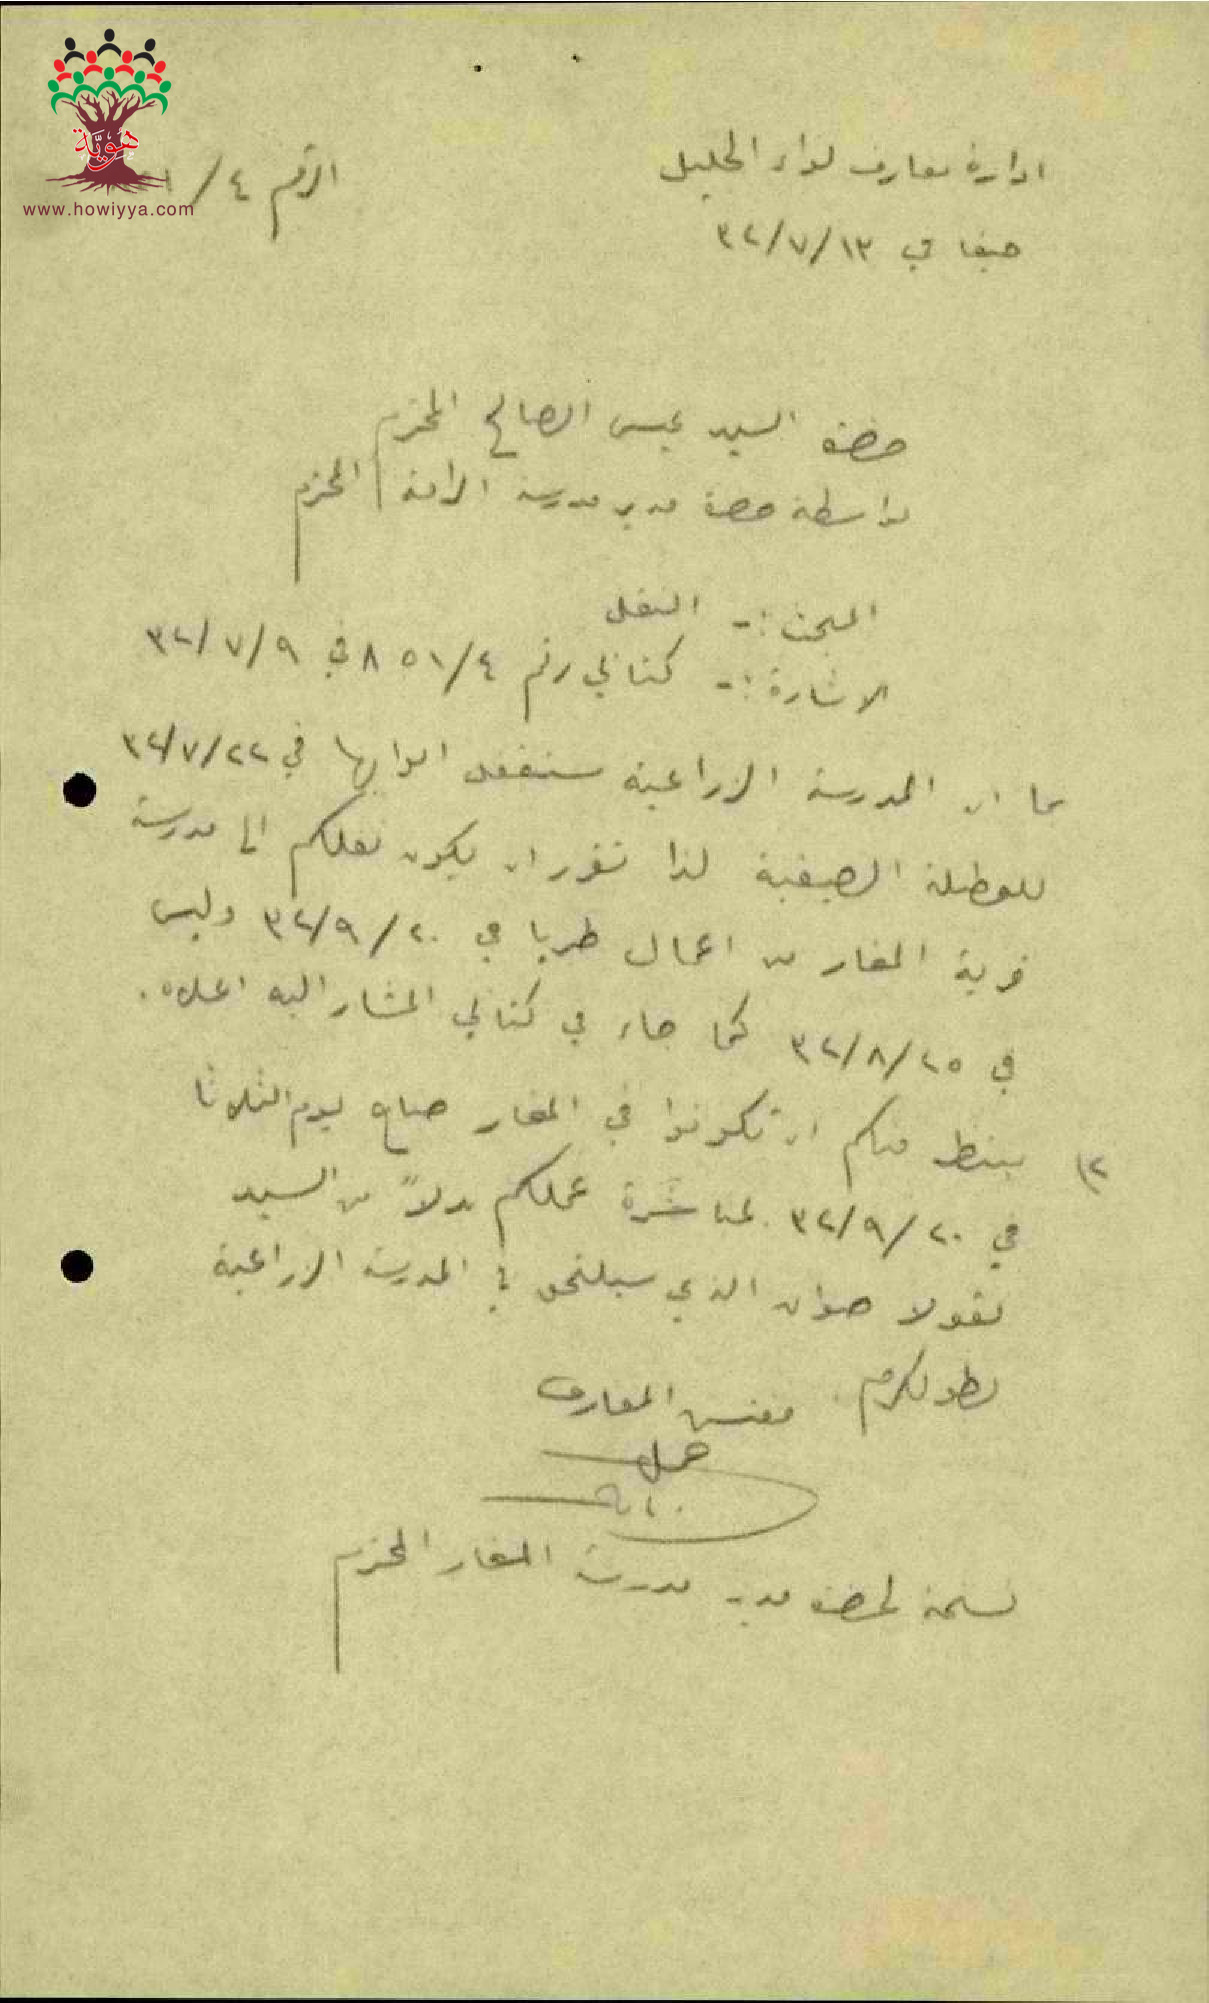 هوية
www.howiyya.com
ادارة معارف لواء الجليل
الرقم ٤/
حيفا في ٣٢/٧/١٣
حضرة السيد عيسى الصالح المحترم
بواسطة حضرة مدير مدرسة الرامة المحترم
المبحث :- النقل
الاشارة :- كتابي رقم ٨٥١/٤ في ٣٢/٧/٩
بما ان المدرسة الزراعية ستقفل ابوابها في ٣٢/٧/٢٢
للعطلة الصيفية لذا تقرر ان يكون نقلكم الى مدرسة
قرية المغار من اعمال طبريا في ٣٢/٩/٢٠ وليس
في ٣٢/٨/٢٥ كما جاء في كتابي المشار اليه اعلاه.
٢) ينتظر منكم ان تكونوا في المغار صباح يوم الثلاثا
في ٣٢/٩/٢٠ لمباشرة عملكم بدلاً من السيد
نقولا الذي سيلتحق في المدرسة الزراعية
بطولكرم.
مفتش المعارف
نسخة لحضرة مدير مدرسة المغار المحترم